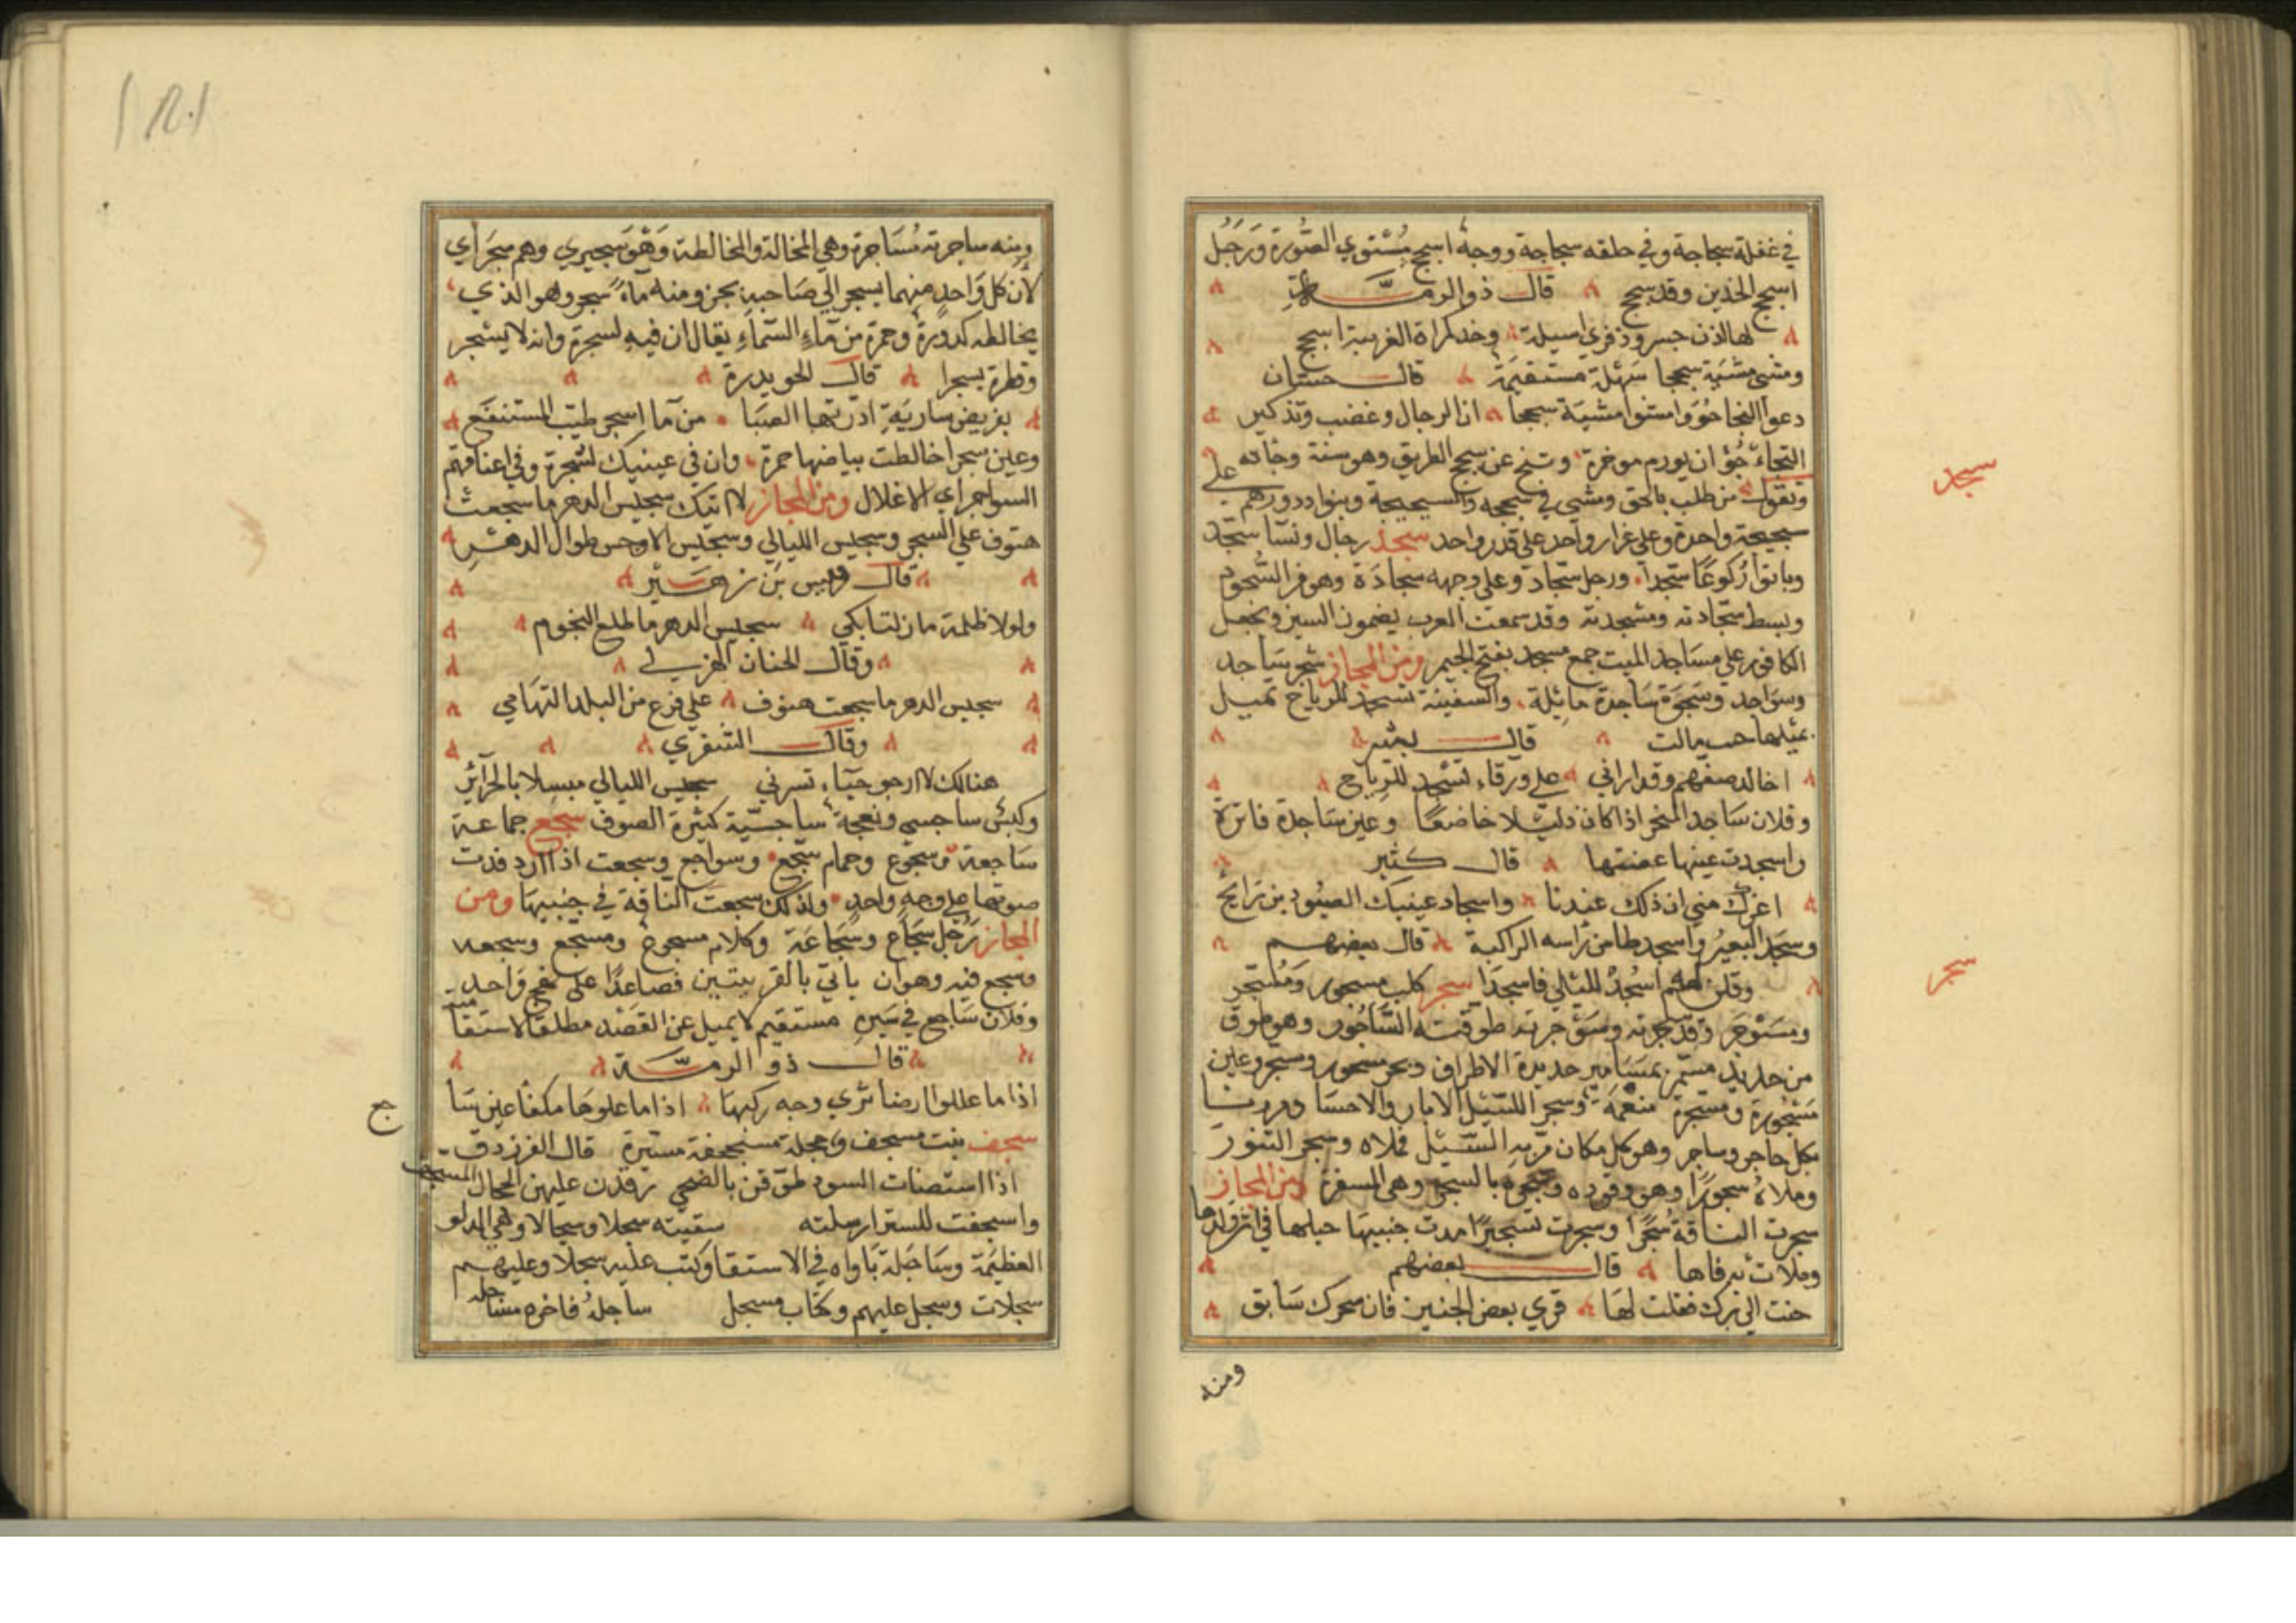 في غفلة سجاجة وفي حلقه سجاجة ووجه اسجح مستوي الصورة ورجل
اسجح الخدين وقد سجح قال ذو الرمة
لها اذن حسر وذفرى اسيلة وخد كمراة الغريبة اسجح
ومشى مشية سجحا سهلة مستقيمة قال حسان
دعوا التخاجؤ وامشوا مشية سجحا ان الرجال وغضب وتذكير
التخاجؤ ان يورم موخره وتنح عن سجح الطريق وهو سننه وجادته
وتقول من طلب بالحق ومشى في سجحه والسجيحة وبنوا دورهم على
سجيحة واحدة وعلى غرار واحد على قدر واحد سجد رجال ونسا سجد
وباتوا ركوعا سجدا ورجل سجاد وعلى وجهه سجادة وهو من السجود
وبسط سجادته ومسجدته وقد سمعت العرب يضمون السين ويجعل
الكافور على مساجد الميت جمع مسجد بفتح الجيم ومن المجاز شجر ساجد
وسواجد وشجرة ساجدة مائلة والسفينة تسجد للرياح تميل
بميلها قال بشر
اخالد صفهم وقد اراني على ورقاء تسجد للرياح
وفلان ساجد المنخر اذا كان ذليلا خاضعا وعين ساجدة فاترة
واسجدت عينها غضتها قال كثير
اغرك مني ان ذلك عندنا واسجاد عينيك الصيود بن رابح
وسجد البعير واسجد طامن راسه لراكبه قال بعضهم
وقلن له اسجد لليلى فاسجدا سجر كلب مسجور ومسجر
ومسوجر وقد سجرته وسوجرته طوقته الساجور وهو طوق
من حديد مسمر بمسامير حديدة الاطراف وبحر مسجور ومسجر وعين
مسجورة ومسجرة مفعمة وسجر السيل الابار والاحسا ومررنا
بكل حاجر وساجر وهو كل مكان مر به السيل فملاه وسجر التنور
وملاه سجورا وهو وقوده وسجره بالمسجر وهي المسعرة ومن المجاز
سجرت الناقة سجرا وسجرت تسجيرا مدت حنينها في اثر ولدها
وملات به فاها قال بعضهم
حنت الى برك فقلت لها قري بعض الحنين فان سجرك سابق
ومنه
سجد
سجر
ومنه ساجرته مساجرة وهي المخالة والمخالطة وهو سجيري وهم سجراي
لان كل واحد منهما يسجر الى صاحبه يحن ومنه ماء سجر وهو الذي
يخالطه كدورة وحمرة من ماء السماء يقال ان فيه لسجرة وانه لا يسجر
وقطرة سجرا قال الحويدرة
بغريض سارية ادرتها الصبا من ما اسجر طيب المستنقع
وعين سجرا خالطت بياضها حمرة وان في عينيك لسجرة وفي اعناقهم
السواجر اي الاغلال ومن المجاز لا اتيك سجيس الدهر ما سجعت
هتوف على الشجر وسجيس الليالي وسجيس الاوجس طوال الدهر
قال قيس بن زهير
ولولا ظلمه ما زلت ابكي سجيس الدهر ما طلع النجوم
وقال الحنان الهزلي
سجيس الدهر ما سجعت هتوف على فرع من البلد التهامي
وقال الشنفري
هنالك لا ارجو حياء تسرني سجيس الليالي مبسلا بالجرائر
وكبش ساجسي ونعجة ساجسية كثيرة الصوف سجع جماعة
ساجعة وسجوع وحمام سجع وسواجع وسجعت اذا ارددت
صوتها على وجه واحد وكذلك سجعت الناقة في حنينها ومن
المجاز رجل سجاع وسجاعة وكلام مسجوع ومسجع وسجعه
وسجع فيه وهو ان ياتي بالقرينتين فصاعدا على نهج واحد
وفلان ساجع في سيره مستقيم لا يميل عن القصد مطلقا لاستقامته
قال ذو الرمة
اذا ما عللوا ارضا ترى وجه ركبها اذا ما علوها مكفا غير سا
جع
سجف بيت مسجف وحجلة مسجفة مستترة قال الفرزدق
اذا استصنات السود طوقن بالضحى رقدن عليهن الحجال المسجف
واسجفت الستر ارسلته سقيته سجلا وسجالا وهي الدلو
العظيمة وساجله باراه في الاستقا وكتب عليه سجلا وعليهم
سجلات وسجل عليهم وكتاب مسجل ساجله فاخره مساجلة